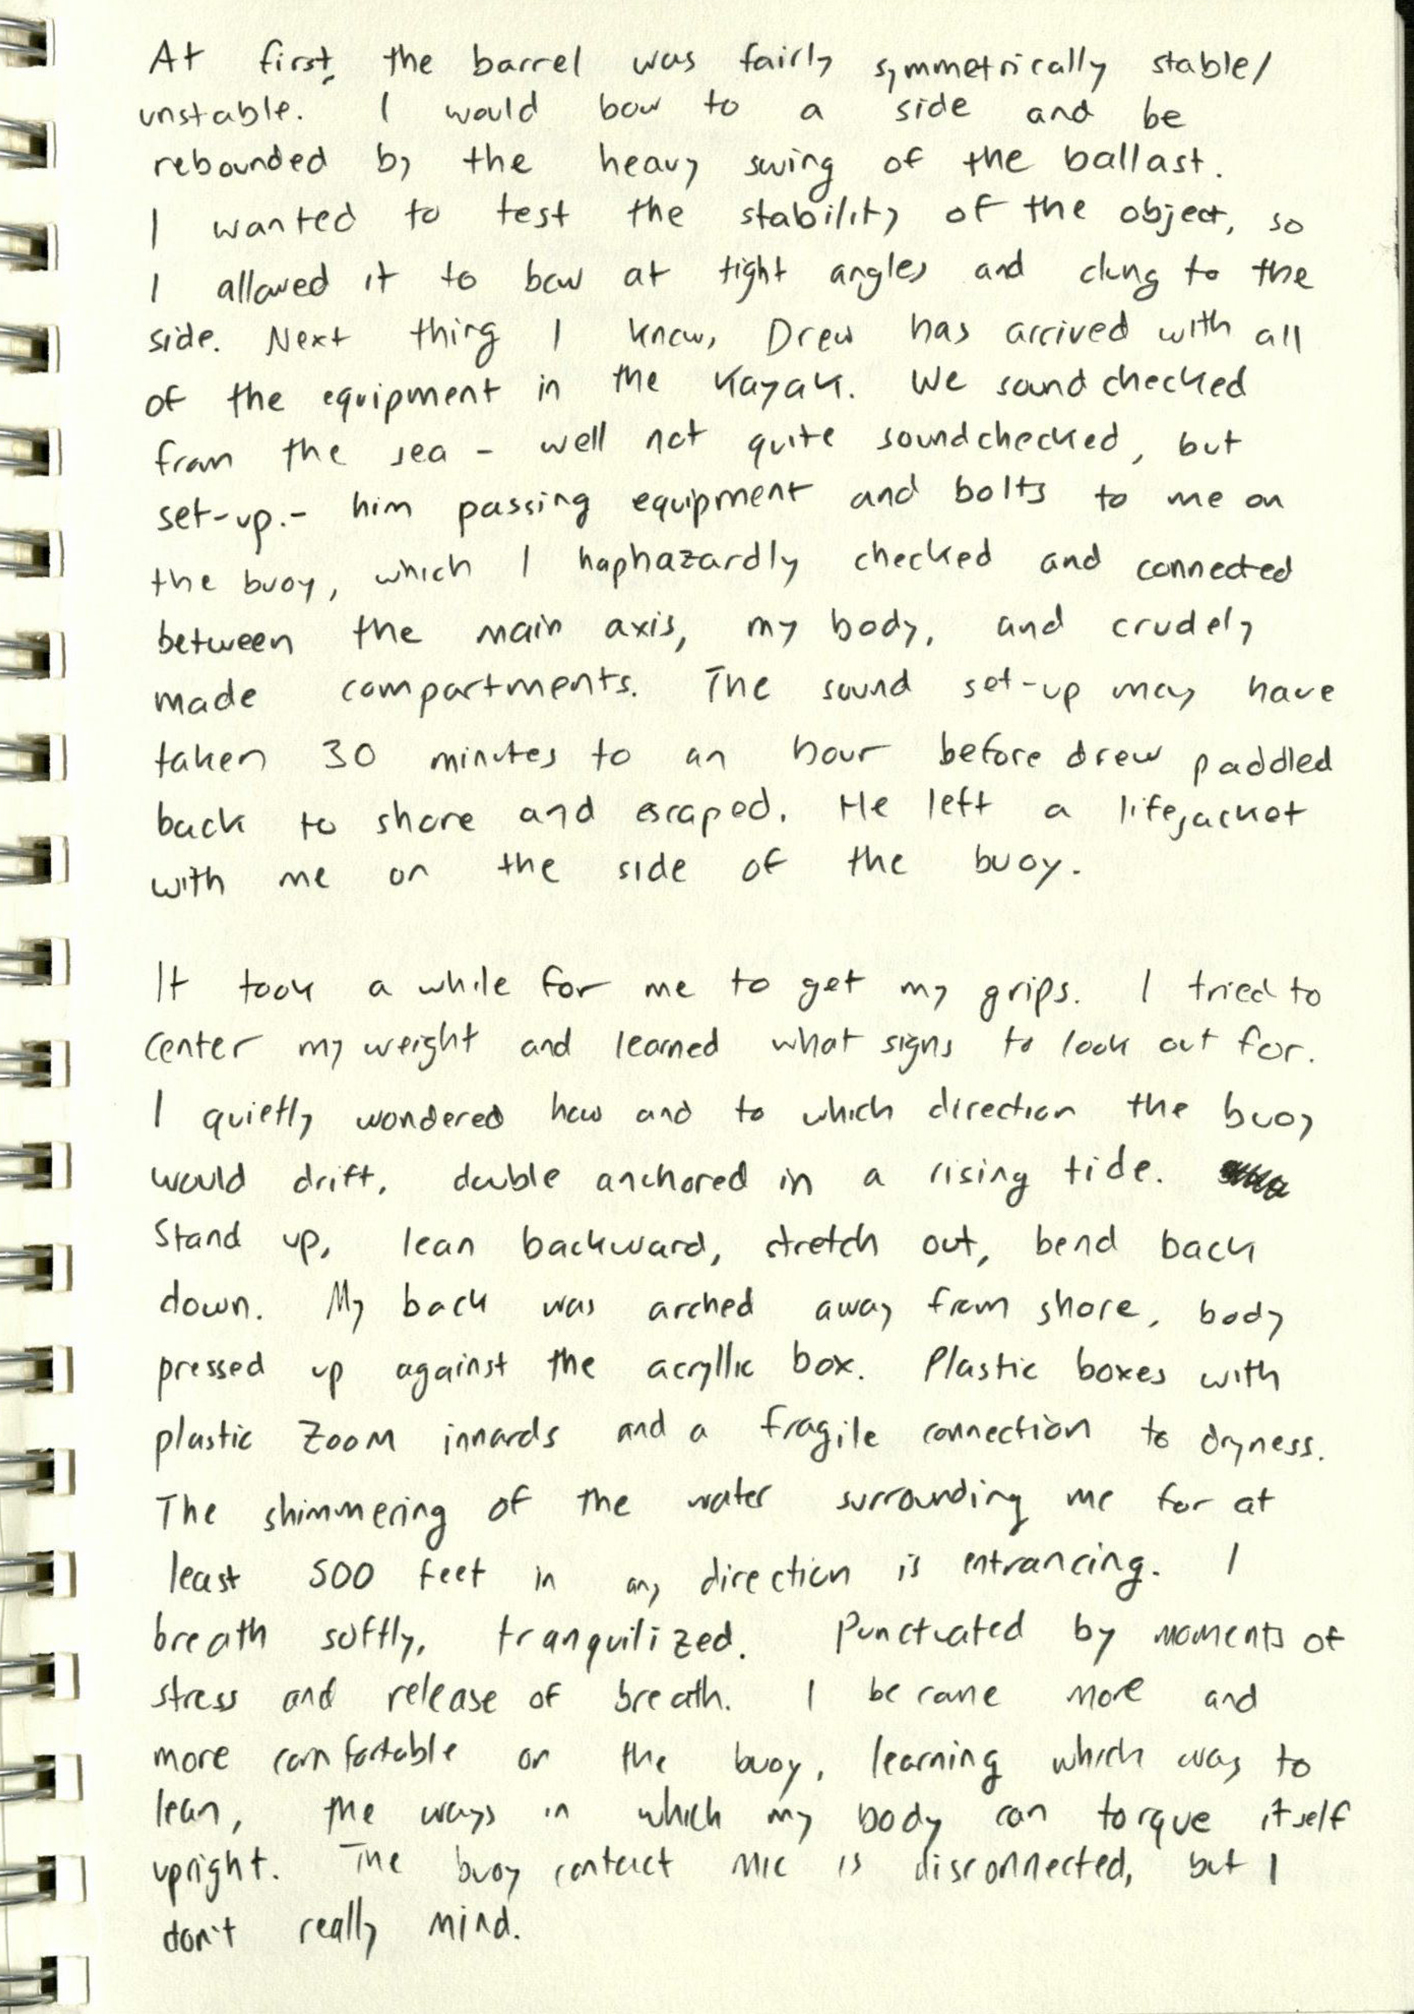 At first, the barrel was fairly symmetrically stable/
unstable. I would bow to a side and be
rebounded by the heavy swing of the ballast.
I wanted to test the stability of the object, so
I allowed it to bow at tight angles and clung to the
side. Next thing I know, Drew has arrived with all
of the equipment in the kayak. We soundchecked
from the sea - well not quite soundchecked, but
set-up.- him passing equipment and bolts to me on
the buoy, which I haphazardly checked and connected
between the main axis, my body, and crudely
made compartments. The sound set-up may have
taken 30 minutes to an hour before drew paddled
back to shore and escaped. He left a lifejacket
with me on the side of the buoy.

It took a while for me to get my grips. I tried to
center my weight and learned what signs to look out for.
I quietly wondered how and to which direction the buoy
would drift, double anchored in a rising tide.
Stand up, lean backward, stretch out, bend back
down. My back was arched away from shore, body
pressed up against the acryllic box. Plastic boxes with
plastic Zoom innards and a fragile connection to dryness.
The shimmering of the water surrounding me for at
least 500 feet in any direction is entrancing. I
breath softly, tranquilized. Punctuated by moments of
stress and release of breath. I became more and
more comfortable on the buoy, learning which way to
lean, the ways in which my body can torque itself
upright. The buoy contact mic is disconnected, but I
don't really mind.